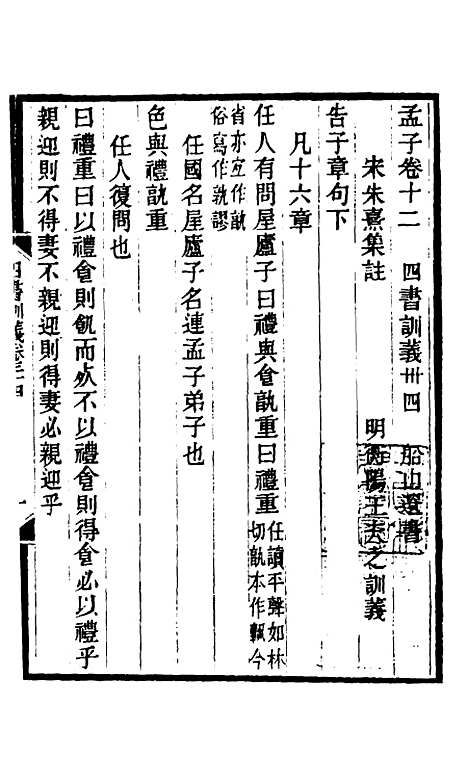 孟子卷十二　四書訓義卅四　船山遺書
宋朱熹集註　明衡陽王夫之訓義
告子章句下
凡十六章
任人有問屋廬子曰禮與食孰重曰禮重任讀平聲如林切孰本作𩱏今
省亦宜作孰俗寫作孰謬
任國名屋廬子名連孟子弟子也
色與禮孰重
任人復問也
曰禮重曰以禮食則飢而死不以禮食則得食必以禮乎
親迎則不得妻不親迎則得妻必親迎乎
四書訓義卷三十四